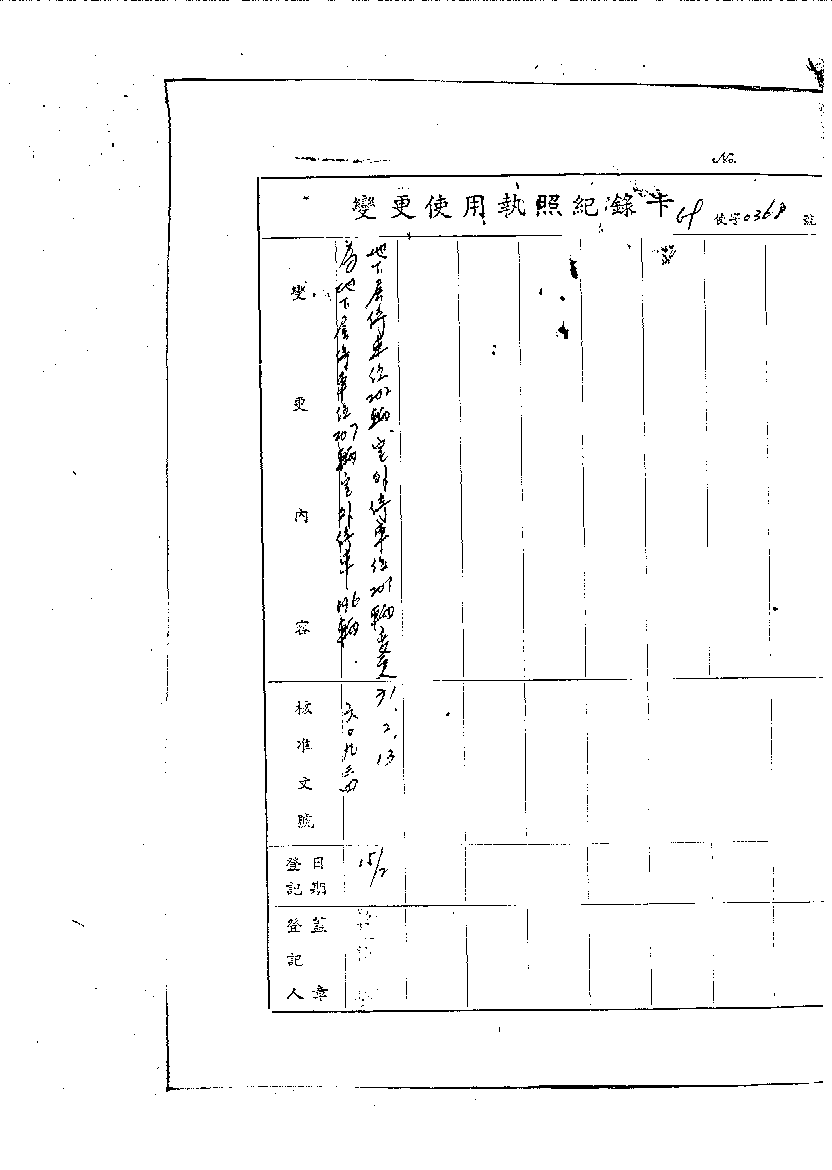 No.
變更使用執照紀錄卡 69 使字0368 號
變更內容
地下層停車位202輛室外停車位201輛變更
為地下層停車位207輛室外停車196輛.
核准文號
71.2.13
六〇九三四
登記日期
15/2
登記人蓋章